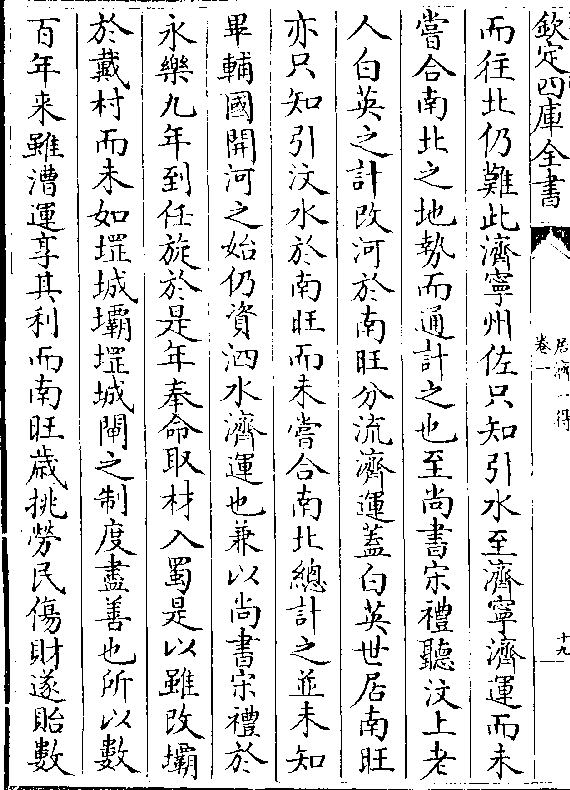 欽定四庫全書
居濟一得
卷一
十九
而往北仍難此濟寧州佐只知引水至濟寧濟運而未
嘗合南北之地勢而通計之也至尚書宋禮聽汶上老
人白英之計改河於南旺分流濟運蓋白英世居南旺
亦只知引汶水於南旺而未嘗合南北總計之並未知
畢輔國開河之始仍資泗水濟運也兼以尚書宋禮於
永樂九年到任旋於是年奉命取材入蜀是以雖改壩
於戴村而未如堽城壩堽城閘之制度盡善也所以數
百年来雖漕運享其利而南旺歲挑勞民傷財遂貽數